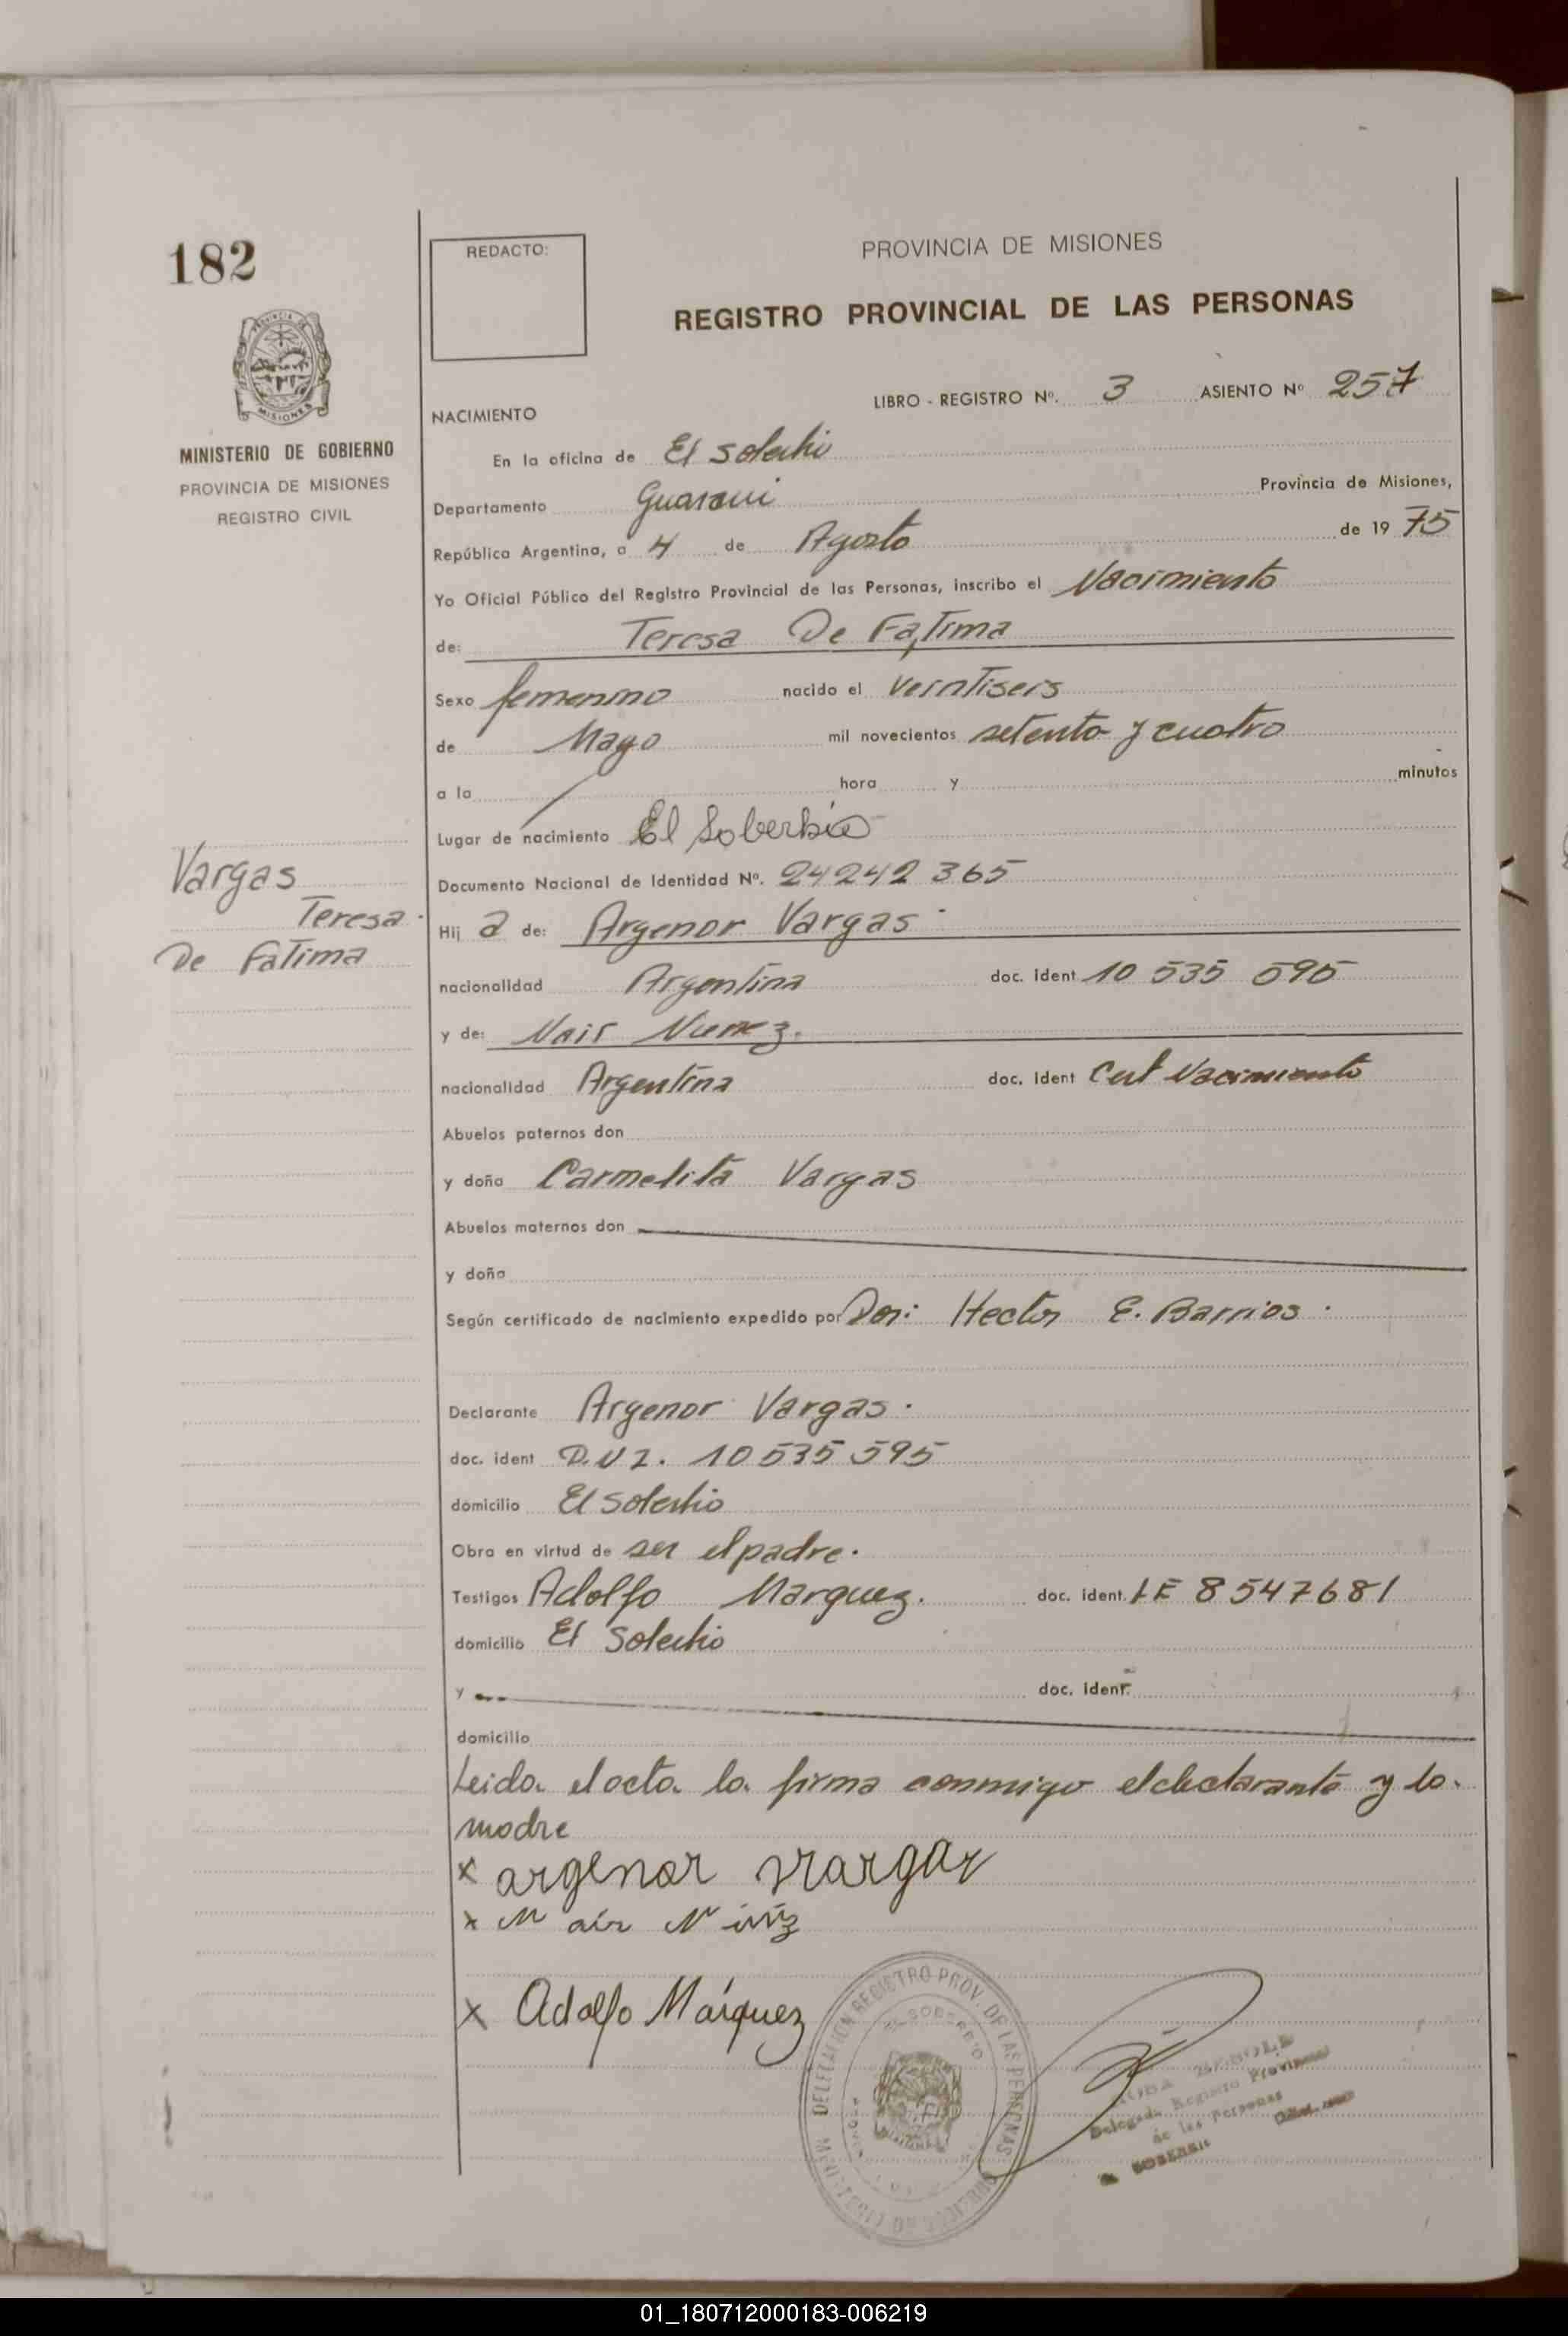 182
REDACTO:
PROVINCIA DE MISIONES
REGISTRO PROVINCIAL DE LAS PERSONAS
MINISTERIO DE GOBIERNO
PROVINCIA DE MISIONES
REGISTRO CIVIL
LIBRO - REGISTRO Nº. 3 ASIENTO Nº 257
NACIMIENTO
En la oficina de El Soberbio
Departamento Guarani Provincia de Misiones,
República Argentina, a 4 de Agosto de 19 75
Yo Oficial Público del Registro Provincial de las Personas, inscribo el Nacimiento
de: Teresa De Fatima
Sexo femenino nacido el veintiseis
de Mayo mil novecientos setenta y cuatro
a la hora y minutos
Lugar de nacimiento El Soberbio
Vargas
Teresa
De Fatima
Documento Nacional de Identidad Nº. 24242365
Hij a de: Argenor Vargas
nacionalidad Argentina doc. ident 10 535 595
y de: Nair Nunez.
nacionalidad Argentina doc. ident Cert Nacimiento
Abuelos paternos don
y doña Carmelita Vargas
Abuelos maternos don
y doña
Según certificado de nacimiento expedido por Hector E. Barrios.
Declarante Argenor Vargas.
doc. ident D.N I. 10535595
domicilio El Soberbio
Obra en virtud de ser el padre.
Testigos Adolfo Marquez. doc. ident. LE 8547681
domicilio El Soberbio
y doc. ident.
domicilio
Leida el acta la firma conmigo el declarante y la
madre
x argenor Vargas
x Nair
x Adolfo Márquez
DELEGACION REGISTRO PROV. DE LAS PERSONAS
EL SOBERBIO
Delegada Registro Provincial
de las Personas
SOBERBIO
01_180712000183-006219